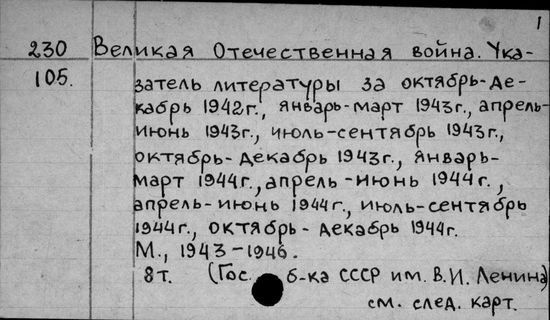 1
230 Великая Отечественная война. Ука-
105. затель литературы за октябрь-де-
кабрь 1942г., январь-март 1943г., апрель-
июнь 1943г., июль-сентябрь 1943г.,
октябрь-декабрь 1943г., январь-
март 1944г., апрель-июнь 1944г.,
апрель-июнь 1944г., июль-сентябрь
1944г., октябрь-декабрь 1944г.
М., 1943-1946.
8т. (Гос. б-ка СССР им. В.И. Ленина)
см. след. карт.